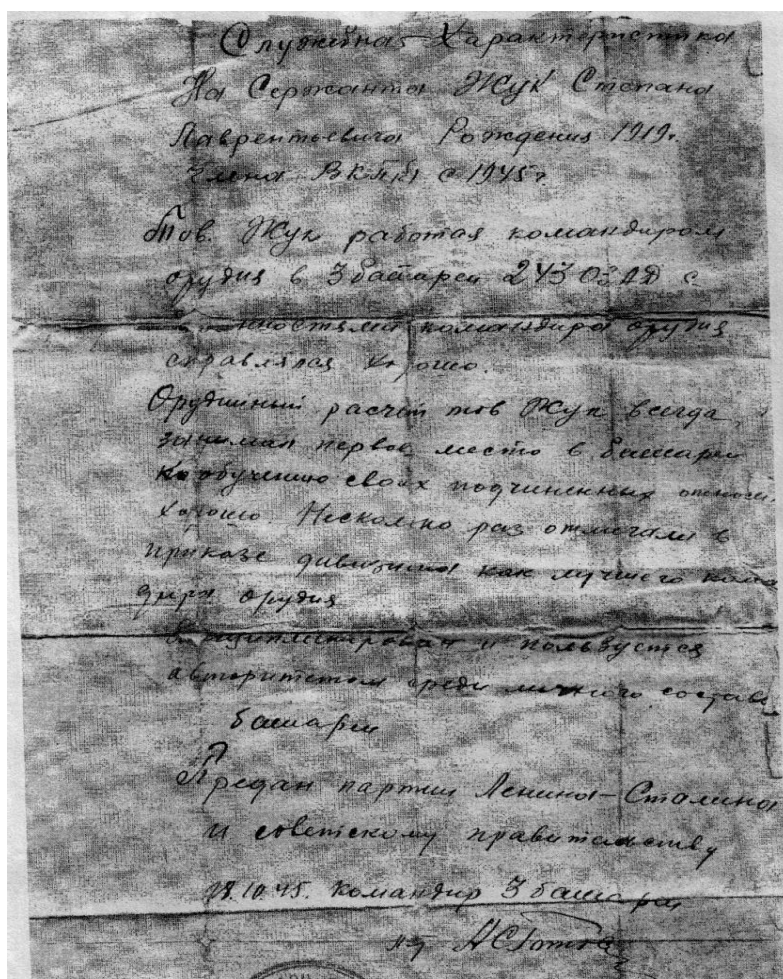 Служебная Характеристика
На Сержанта Жук Степана
Лаврентьевича Рождения 1919г.
Члена ВКПб с 1945г.
Тов. Жук работая командиром
орудия в 3 батареи 243 ОЗАД с
командира орудия
справлялся хорошо.
Орудийный расчёт тов Жук всегда
занимал первое место в батареи
К обучению своих подчиненных относи
хорошо. Несколко раз отмечали в
приказе дивизиона как лучшего коман
дира орудия
и пользуется
авторитетом среди личного состава
батареи
Предан партии Ленина-Сталина
и советскому правительству
28.10.45. Командир 3 батареи